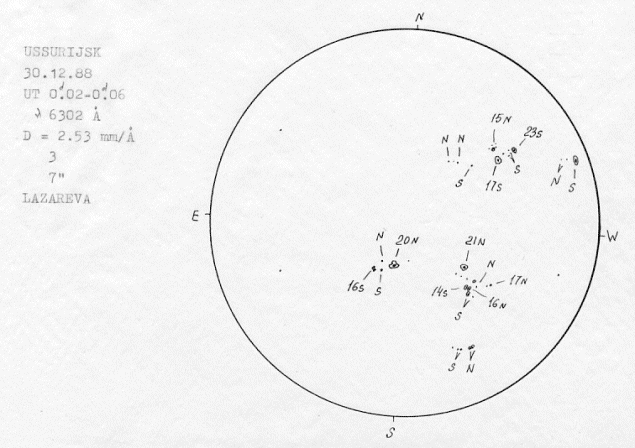 USSURIJSK
30.12.88
UT 0ᵈ.02-0ᵈ.06
λ 6302 Å
D = 2.53 mm/Å
3
7"
LAZAREVA
N
15N
23S
N N
S
17S
S
N
S
E
W
N
20N
21N
N
17N
16S
S
14S
16N
S
S
N
S